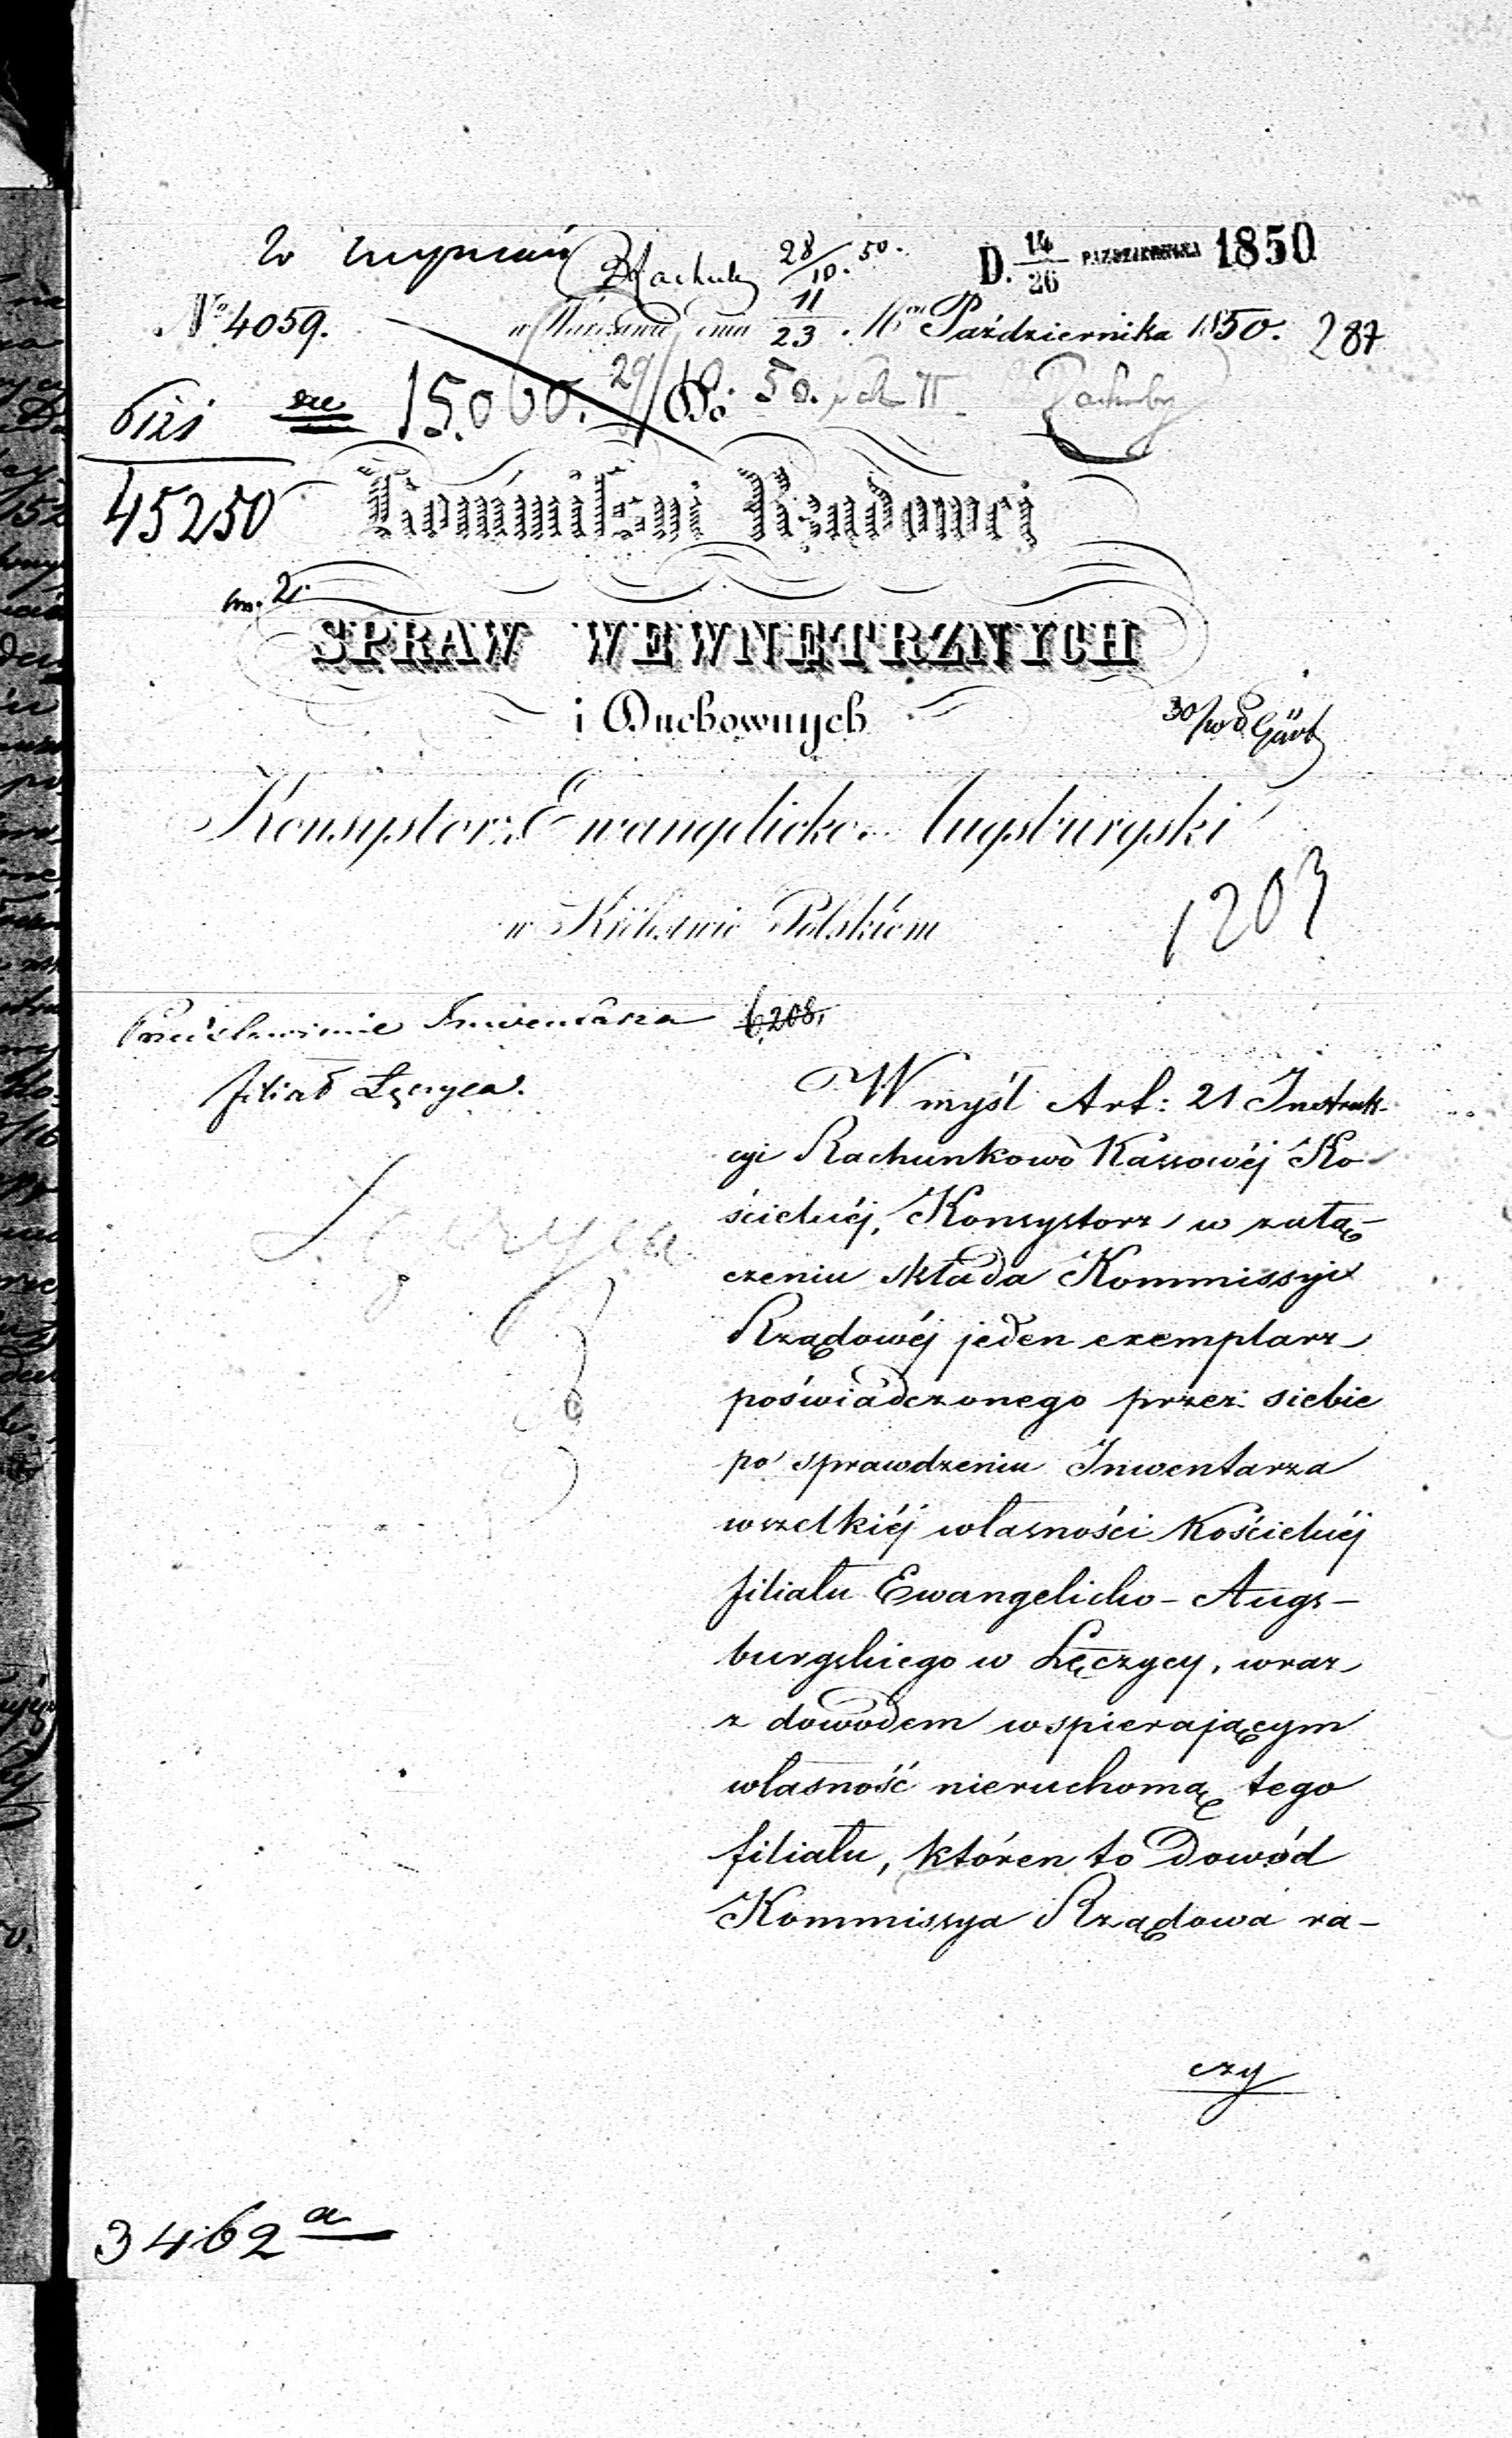 28/10. 50.
D. 14/26 PAZDZIERNIKA 1850
No 4059.
w Warszawie dnia 11/23 Października 1850. 287
15.000. 29/10 50.
Do
45250
Kommissyi Rządowej
SPRAW WEWNĘTRZNYCH
i Duchownych
Konsystorz Ewangelicko-Augsburgski
w Królestwie Polskiém
1203
Przedstawienie Inwentarza
6208.
filiał Łęczyca.
Łęczyca
W myśl Art: 21 Instruk-
cyi Rachunkowo Kassowéj Ko-
ścielnéj, Konsystorz w załą-
czeniu składa Kommissyi
Rządowéj jeden exemplarz
poświadczonego przez siebie
po sprawdzeniu Inwentarza
wszelkiéj własności Kościelnéj
filiału Ewangelicko-Augs-
burgskiego w Łęczycy, wraz
z dowodem wspierającym
własność nieruchomą tego
filiału, któren to Dowód
Kommissya Rządowa ra-
czy
3462 a